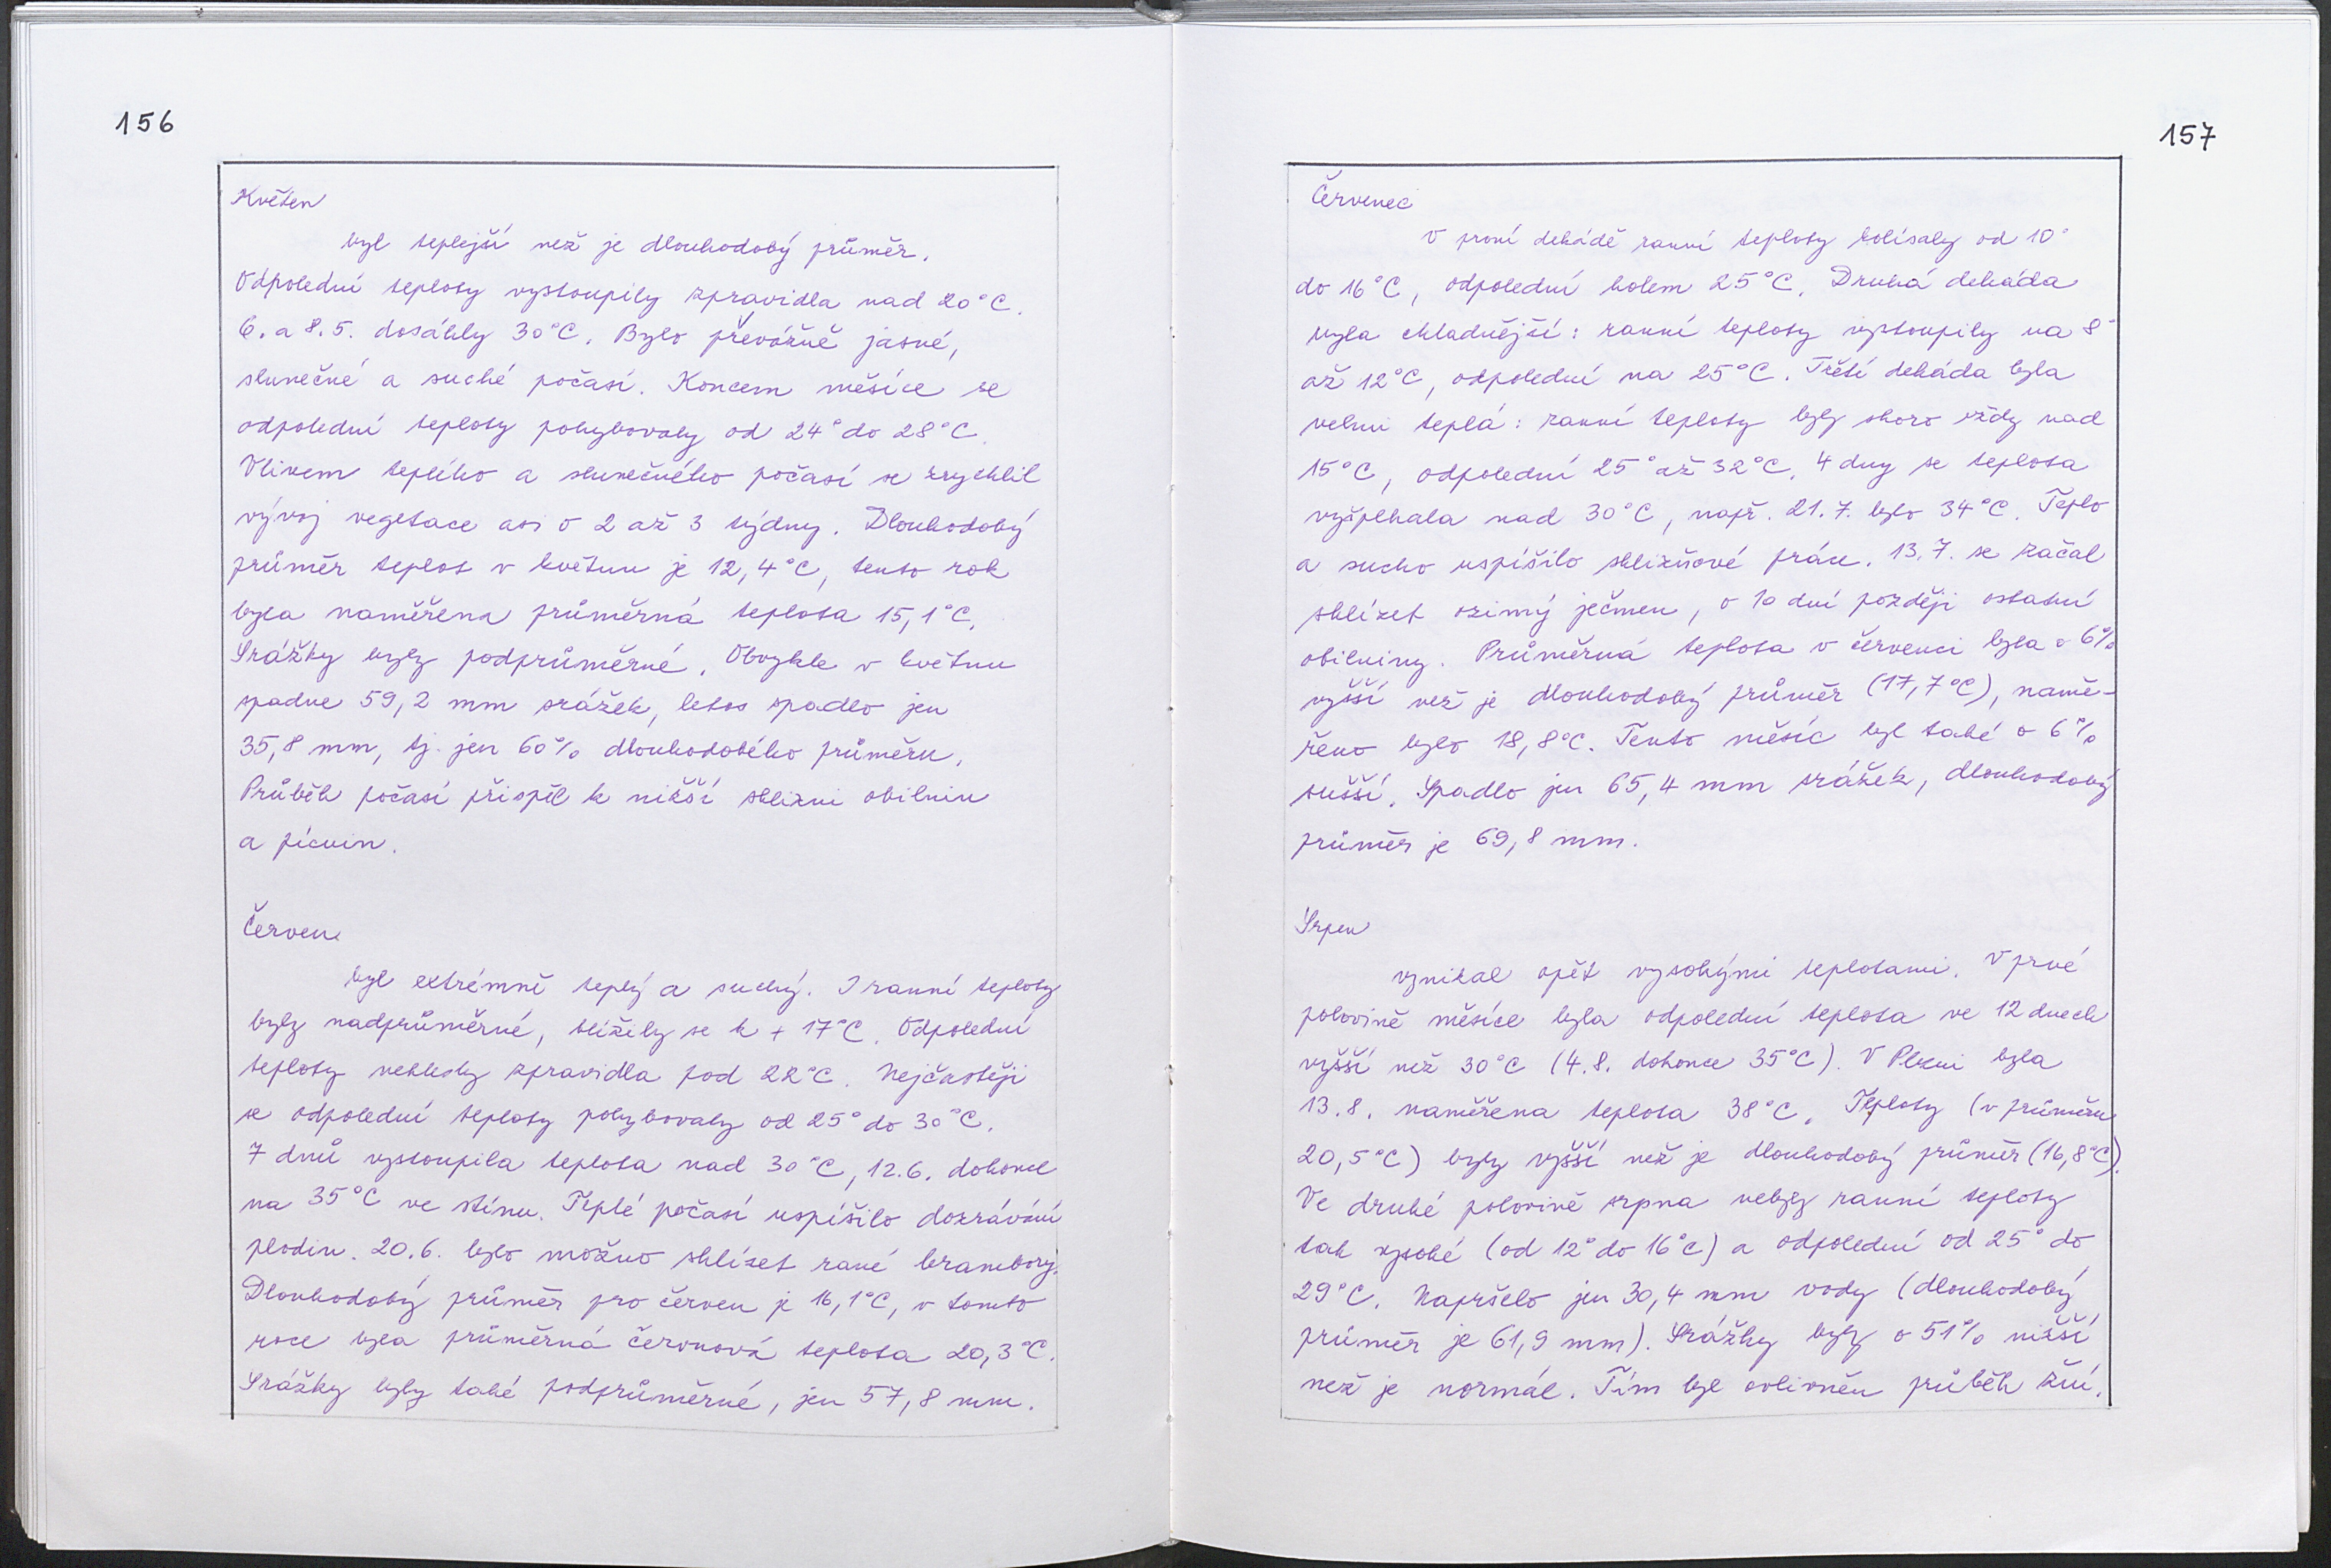 156
Květen
byl teplejší než je dlouhodobý průměr.
Odpolední teploty vystoupily zpravidla nad 20°C.
6. a 8.5. dosáhly 30°C. Bylo převážně jasné,
slunečné a suché počasí. Koncem měsíce se
odpolední teploty pohybovaly od 24° do 28°C.
Vlivem teplého a slunečného počasí se zrychlil
vývoj vegetace asi o 2 až 3 týdny. Dlouhodobý
průměr teplot v květnu je 12,4°C, tento rok
byla naměřena průměrná teplota 15,1°C.
Srážky byly podprůměrné. Obvykle v květnu
spadne 59,2 mm srážek, letos spadlo jen
35,8 mm, tj. jen 60% dlouhodobého průměru.
Průběh počasí přispěl k nižší sklizni obilnin
a pícnin.
Červen
byl extrémně teplý a suchý. I ranní teploty
byly nadprůměrné, blížily se k + 17°C. Odpolední
teploty neklesly zpravidla pod 22°C. Nejčastěji
se odpolední teploty pohybovaly od 25° do 30°C.
7 dnů vystoupila teplota nad 30°C, 12.6. dokonce
na 35°C ve stínu. Teplé počasí uspíšilo dozrávání
plodin. 20.6. bylo možno sklízet rané brambory.
Dlouhodobý průměr pro červen je 16,1°C, v tomto
roce byla průměrná červnová teplota 20,3°C.
Srážky byly také podprůměrné, jen 57,8 mm.
157
Červenec
V první dekádě ranní teploty kolísaly od 10°
do 16°C, odpolední kolem 25°C. Druhá dekáda
byla chladnější: ranní teploty vystoupily na 8°
až 12°C, odpolední na 25°C. Třetí dekáda byla
velmi teplá: ranní teploty byly skoro vždy nad
15°C, odpolední 25° až 32°C. 4 dny se teplota
vyšplhala nad 30°C, např. 21.7. bylo 34°C. Teplo
a sucho uspíšilo sklizňové práce. 13.7. se začal
sklízet ozimý ječmen, o 10 dní později ostatní
obilniny. Průměrná teplota v červenci byla o 6%
vyšší než je dlouhodobý průměr (17,7°C), namě-
řeno bylo 18,8°C. Tento měsíc byl také o 6%
sušší. Spadlo jen 65,4 mm srážek, dlouhodobý
průměr je 69,8 mm.
Srpen
vynikal opět vysokými teplotami. V prvé
polovině měsíce byla odpolední teplota ve 12 dnech
vyšší než 30°C (4.8. dokonce 35°C). V Plzni byla
13.8. naměřena teplota 38°C. Teploty (v průměru
20,5°C) byly vyšší než je dlouhodobý průměr (16,8°C).
Ve druhé polovině srpna nebyly ranní teploty
tak vysoké (od 12° do 16°C) a odpolední od 25° do
29°C. Napršelo jen 30,4 mm vody (dlouhodobý
průměr je 61,9 mm). Srážky byly o 51% nižší
než je normál. Tím byl ovlivněn průběh žní.